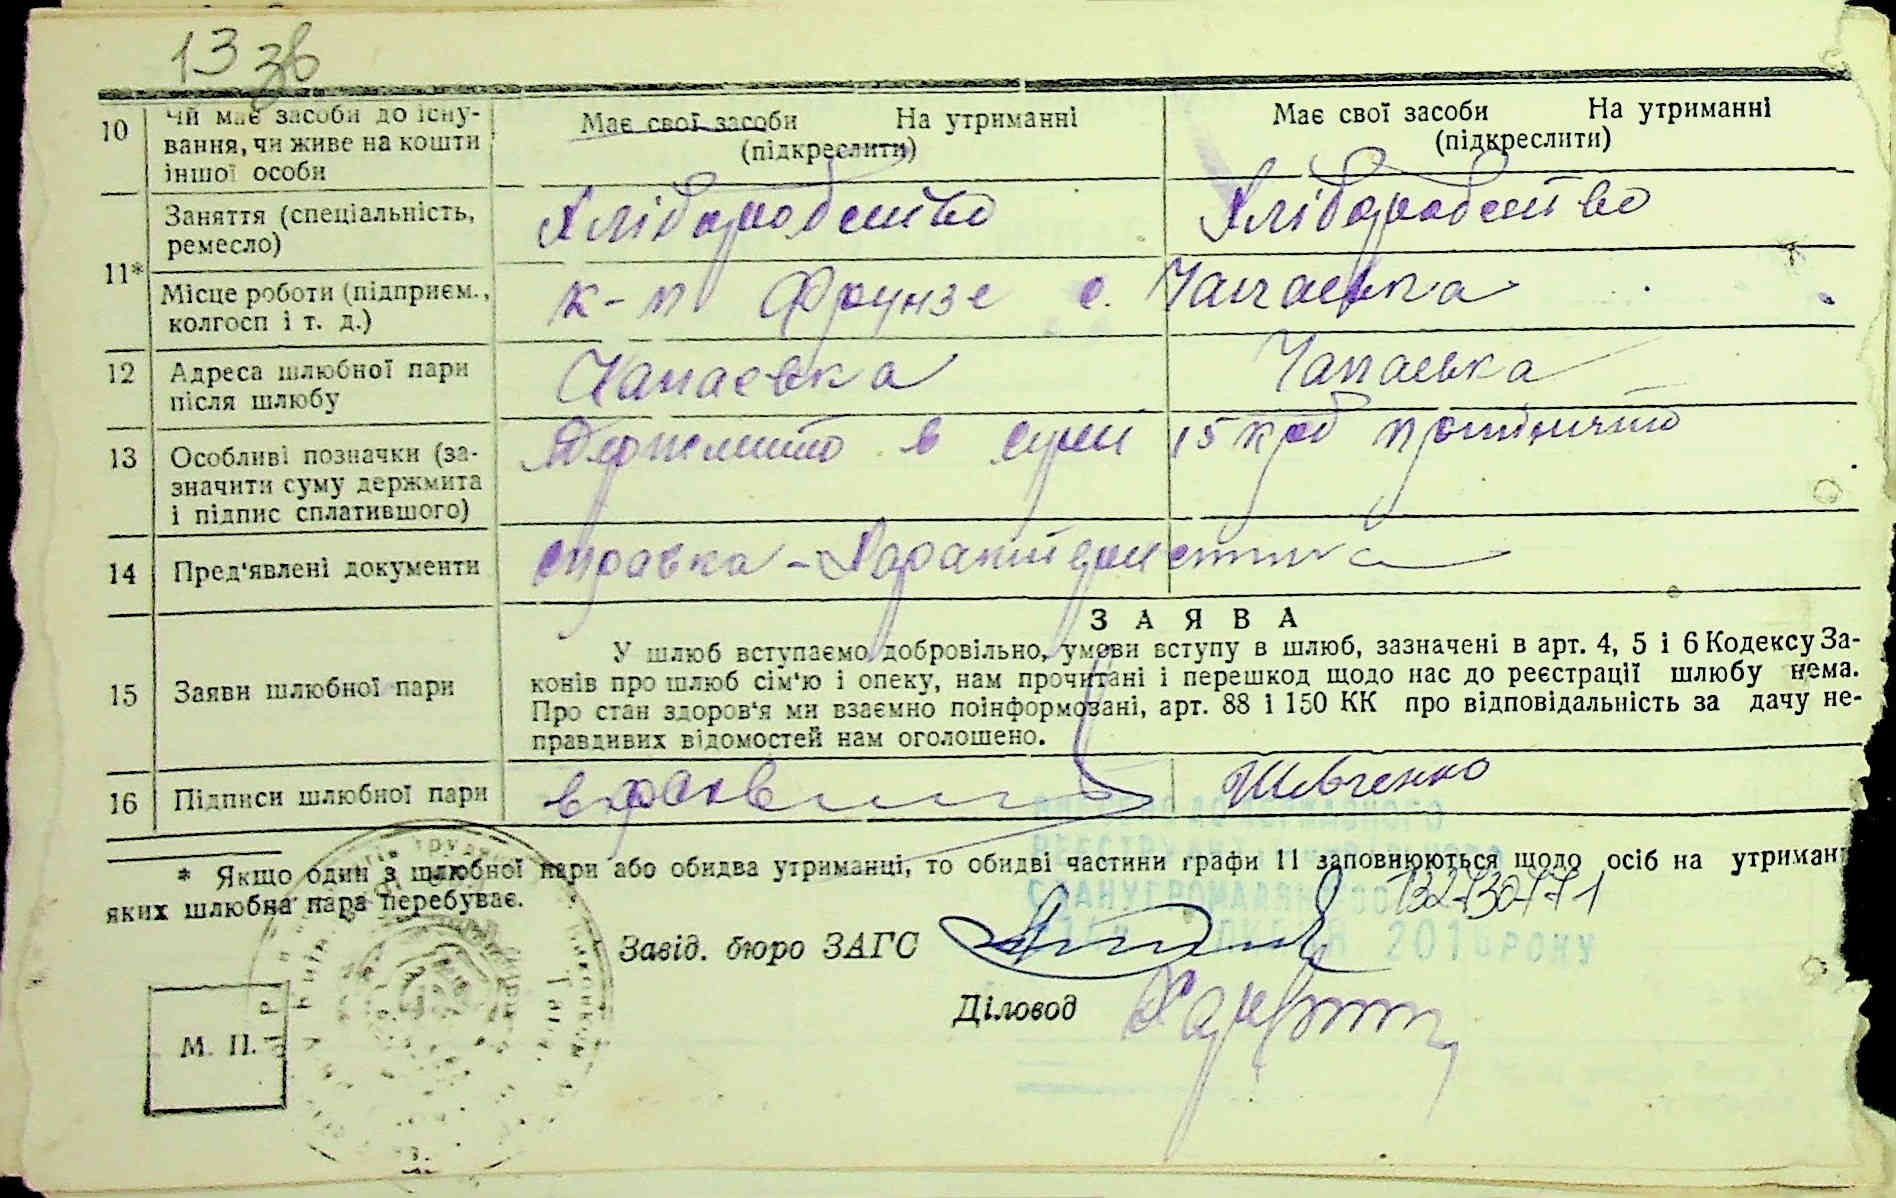 13 зв
10 Чи має засоби до існу-
вання, чи живе на кошти
іншої особи
Має свої засоби На утриманні
(підкреслити)
Має свої засоби На утриманні
(підкреслити)
11* Заняття (спеціальність,
ремесло)
Хліборобство Хліборобство
Місце роботи (підприєм.,
колгосп і т. д.)
к-п Фрунзе с. Чапаєвка
12 Адреса шлюбної пари
після шлюбу
Чапаєвка Чапаєвка
13 Особливі позначки (за-
значити суму держмита
і підпис сплатившого)
Держмито в сумі 15 крб
14 Пред'явлені документи
справка -
15 Заяви шлюбної пари
ЗАЯВА
У шлюб вступаємо добровільно, умови вступу в шлюб, зазначені в арт. 4, 5 і 6 Кодексу За-
конів про шлюб сім'ю і опеку, нам прочитані і перешкод щодо нас до реєстрації шлюбу нема.
Про стан здоров'я ми взаємно поінформовані, арт. 88 і 150 КК про відповідальність за дачу не-
правдивих відомостей нам оголошено.
16 Підписи шлюбної пари
Шевченко
* Якщо один з шлюбної пари або обидва утриманці, то обидві частини графи 11 заповнюються щодо осіб на утриман
яких шлюбна пара перебуває.
132730771
2016 РОКУ
Завід. бюро ЗАГС
Діловод
М. П.